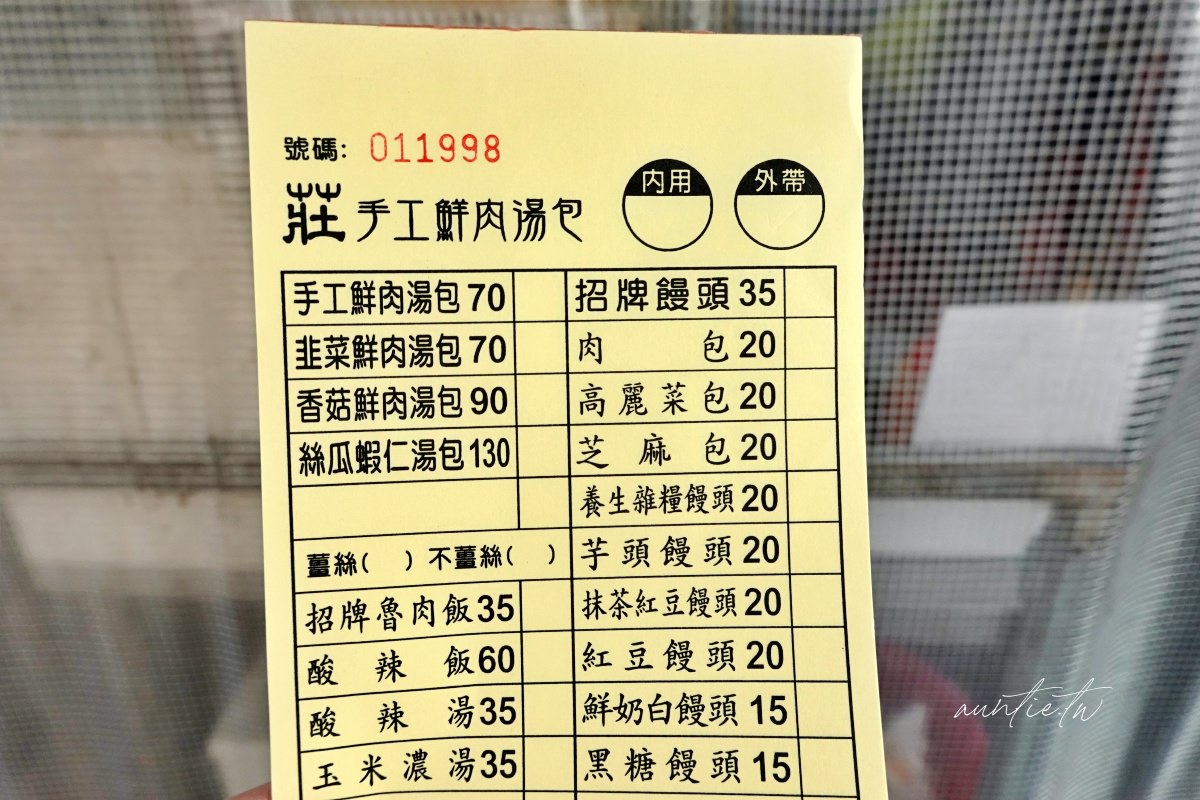 號碼: 011998
莊 手工鮮肉湯包
內用
外帶
手工鮮肉湯包 70
韭菜鮮肉湯包 70
香菇鮮肉湯包 90
絲瓜蝦仁湯包 130
薑絲( ) 不薑絲( )
招牌魯肉飯 35
酸辣飯 60
酸辣湯 35
玉米濃湯 35
招牌饅頭 35
肉包 20
高麗菜包 20
芝麻包 20
養生雜糧饅頭 20
芋頭饅頭 20
抹茶紅豆饅頭 20
紅豆饅頭 20
鮮奶白饅頭 15
黑糖饅頭 15
auntie.tw